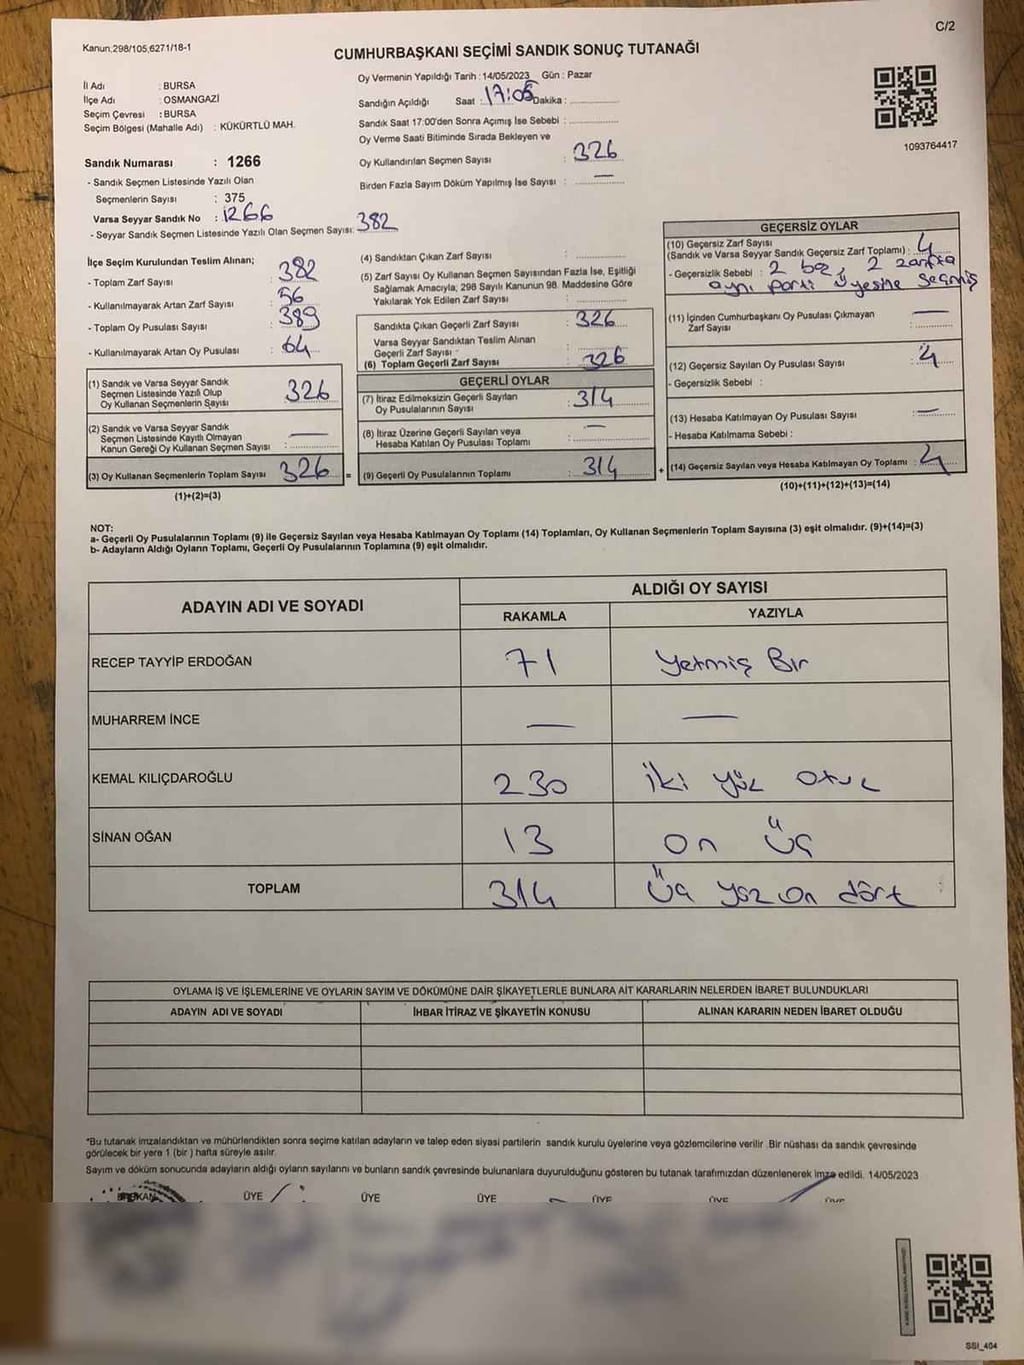 C/2
Kanun;298/105,6271/18-1
CUMHURBAŞKANI SEÇİMİ SANDIK SONUÇ TUTANAĞI
İl Adı : BURSA
İlçe Adı : OSMANGAZİ
Seçim Çevresi : BURSA
Seçim Bölgesi (Mahalle Adı) : KÜKÜRTLÜ MAH.
Sandık Numarası : 1266
- Sandık Seçmen Listesinde Yazılı Olan
Seçmenlerin Sayısı : 375
Varsa Seyyar Sandık No : 1266
- Seyyar Sandık Seçmen Listesinde Yazılı Olan Seçmen Sayısı: 382
Oy Vermenin Yapıldığı Tarih : 14/05/2023 Gün : Pazar
Sandığın Açıldığı Saat : 17:05 Dakika :
Sandık Saat 17:00'den Sonra Açımış İse Sebebi :
Oy Verme Saati Bitiminde Sırada Bekleyen ve
Oy Kullandırılan Seçmen Sayısı : 326
Birden Fazla Sayım Döküm Yapılmış İse Sayısı : —
1093764417
İlçe Seçim Kurulundan Teslim Alınan;
- Toplam Zarf Sayısı : 382
- Kullanılmayarak Artan Zarf Sayısı : 56
- Toplam Oy Pusulası Sayısı : 389
- Kullanılmayarak Artan Oy Pusulası : 64
(1) Sandık ve Varsa Seyyar Sandık
Seçmen Listesinde Yazılı Olup
Oy Kullanan Seçmenlerin Sayısı : 326
(2) Sandık ve Varsa Seyyar Sandık
Seçmen Listesinde Kayıtlı Olmayan
Kanun Gereği Oy Kullanan Seçmen Sayısı : —
(3) Oy Kullanan Seçmenlerin Toplam Sayısı 326 =
(1)+(2)=(3)
(4) Sandıktan Çıkan Zarf Sayısı :
(5) Zarf Sayısı Oy Kullanan Seçmen Sayısından Fazla İse, Eşitliği
Sağlamak Amacıyla; 298 Sayılı Kanunun 98. Maddesine Göre
Yakılarak Yok Edilen Zarf Sayısı :
Sandıkta Çıkan Geçerli Zarf Sayısı : 326
Varsa Seyyar Sandıktan Teslim Alınan
Geçerli Zarf Sayısı
(6) Toplam Geçerli Zarf Sayısı : 326
GEÇERLİ OYLAR
(7) İtiraz Edilmeksizin Geçerli Sayılan
Oy Pusulalarının Sayısı : 314
(8) İtiraz Üzerine Geçerli Sayılan veya
Hesaba Katılan Oy Pusulası Toplamı : —
(9) Geçerli Oy Pusulalarının Toplamı : 314 +
GEÇERSİZ OYLAR
(10) Geçersiz Zarf Sayısı
(Sandık ve Varsa Seyyar Sandık Geçersiz Zarf Toplamı) : 4
- Geçersizlik Sebebi : 2 boş, 2 zarfta
aynı parti üyesine seçmiş
(11) İçinden Cumhurbaşkanı Oy Pusulası Çıkmayan
Zarf Sayısı : —
(12) Geçersiz Sayılan Oy Pusulası Sayısı : 4
- Geçersizlik Sebebi :
(13) Hesaba Katılmayan Oy Pusulası Sayısı : —
- Hesaba Katılmama Sebebi :
(14) Geçersiz Sayılan veya Hesaba Katılmayan Oy Toplamı : 4
(10)+(11)+(12)+(13)=(14)
NOT:
a- Geçerli Oy Pusulalarının Toplamı (9) ile Geçersiz Sayılan veya Hesaba Katılmayan Oy Toplamı (14) Toplamları, Oy Kullanan Seçmenlerin Toplam Sayısına (3) eşit olmalıdır. (9)+(14)=(3)
b- Adayların Aldığı Oyların Toplamı, Geçerli Oy Pusulalarının Toplamına (9) eşit olmalıdır.
ADAYIN ADI VE SOYADI ALDIĞI OY SAYISI
RAKAMLA YAZIYLA
RECEP TAYYİP ERDOĞAN 71 Yetmiş Bir
MUHARREM İNCE — —
KEMAL KILIÇDAROĞLU 230 İki yüz otuz
SİNAN OĞAN 13 on üç
TOPLAM 314 Üç yüz on dört
OYLAMA İŞ VE İŞLEMLERİNE VE OYLARIN SAYIM VE DÖKÜMÜNE DAİR ŞİKAYETLERLE BUNLARA AİT KARARLARIN NELERDEN İBARET BULUNDUKLARI
ADAYIN ADI VE SOYADI İHBAR İTİRAZ VE ŞİKAYETİN KONUSU ALINAN KARARIN NEDEN İBARET OLDUĞU
*Bu tutanak imzalandıktan ve mühürlendikten sonra seçime katılan adayların ve talep eden siyasi partilerin sandık kurulu üyelerine veya gözlemcilerine verilir .Bir nüshası da sandık çevresinde
görülecek bir yere 1 (bir ) hafta süreyle asılır.
Sayım ve döküm sonucunda adayların aldığı oyların sayılarını ve bunların sandık çevresinde bulunanlara duyurulduğunu gösteren bu tutanak tarafımızdan düzenlenerek imza edildi. 14/05/2023
BAŞKAN ÜYE ÜYE ÜYE ÜYE ÜYE ÜYE
SSI_404